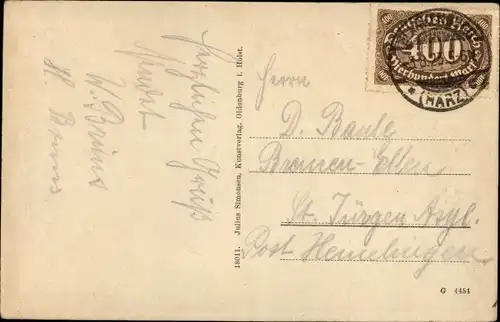 Deutsches Reich
400
Vierhundert Mark
(HARZ)
Herzlichen Gruß
sendet
W. Bruns
H. Bruns
18011. Julius Simonsen, Kunstverlag, Oldenburg i. Holst.
Herrn
D. Baule
Bremen-Ellen
St. Jürgen Asyl.
Post Hemelingen
G 4454